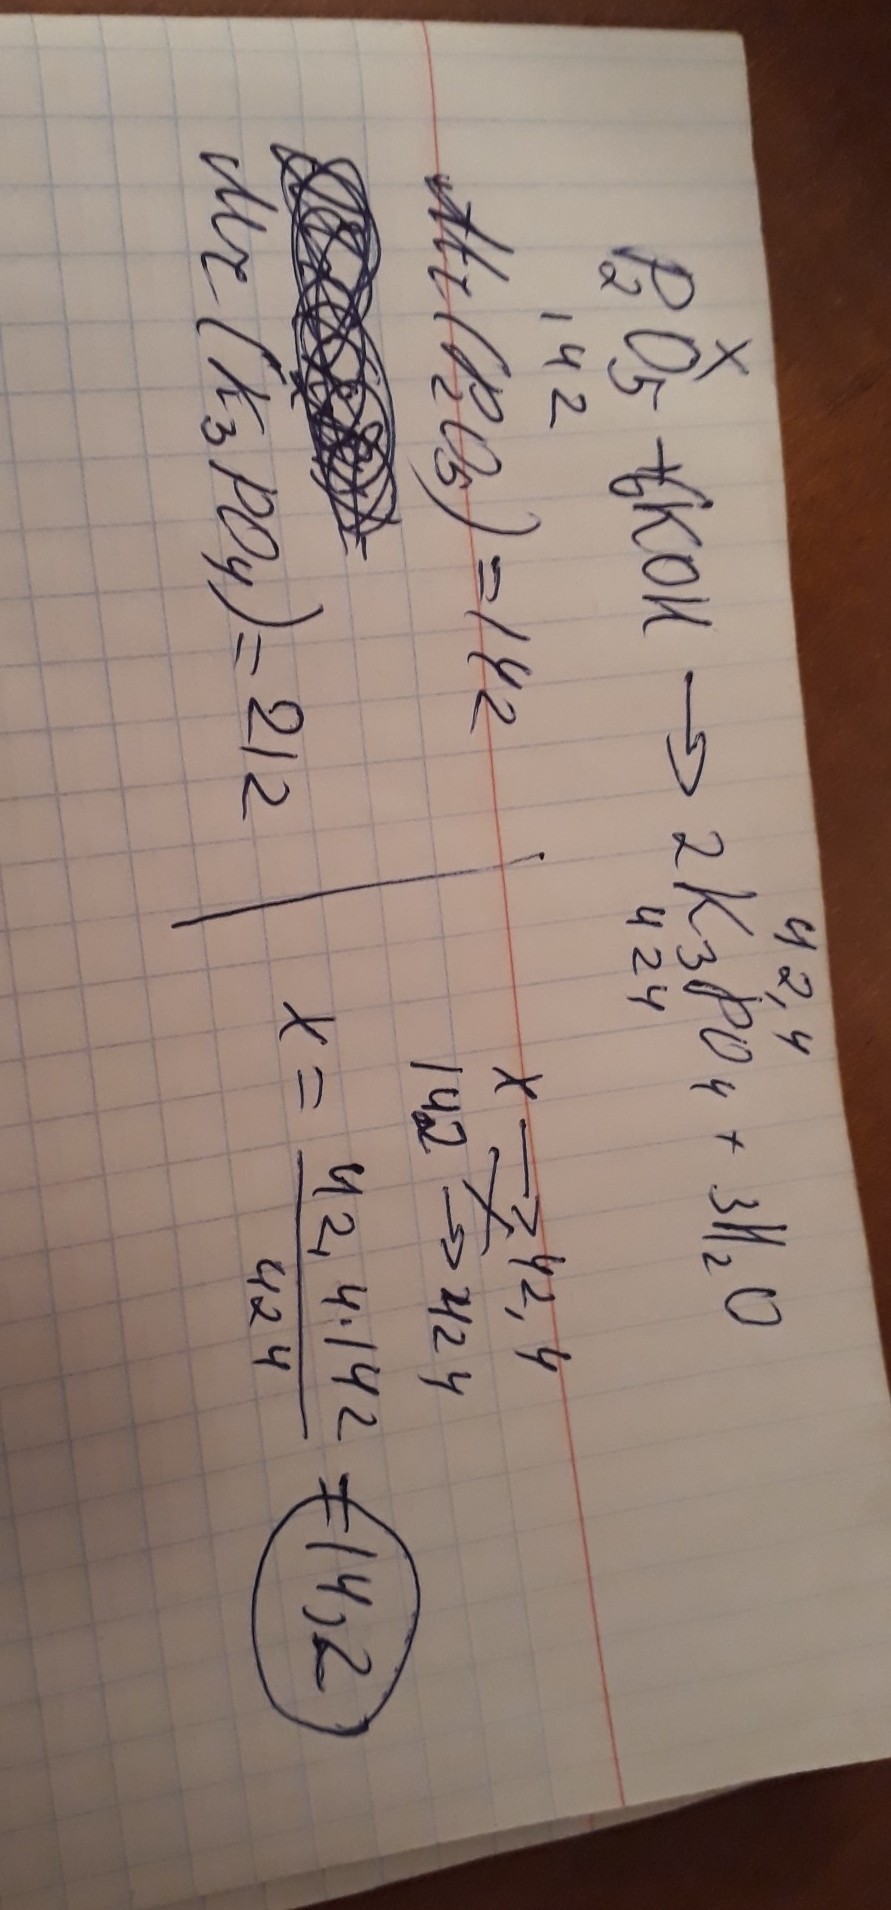 x 42,4
P2O5 + 6KOH → 2K3PO4 + 3H2O
142 424
Mr(P2O5) = 142
Mr(K3PO4) = 212
x → 42,4
142 → 424
x = 42,4·142 / 424 = 14,2